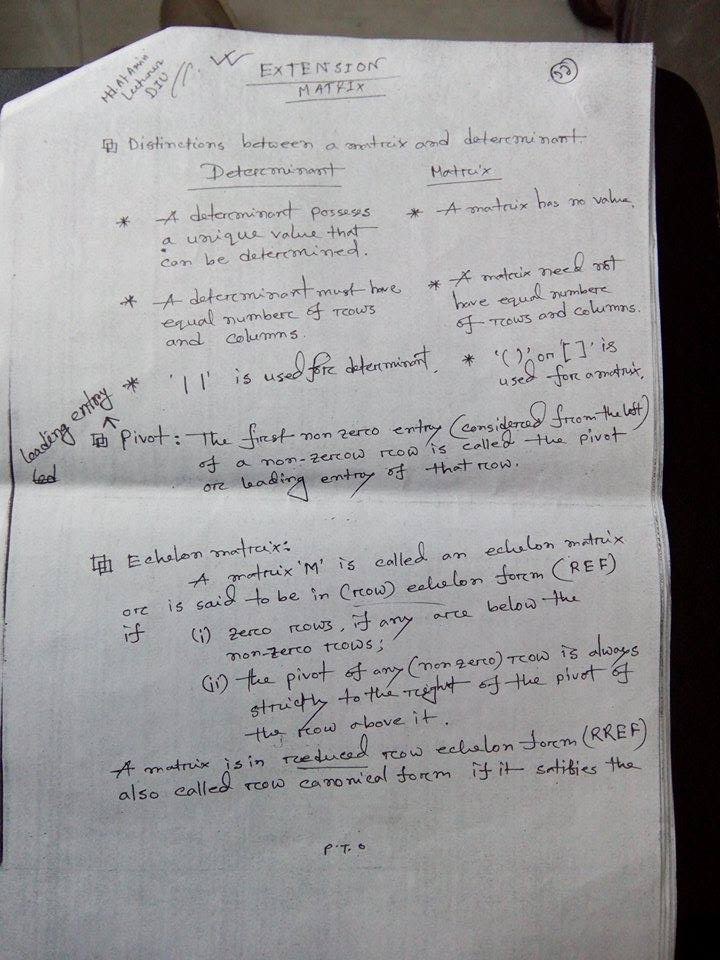 Md. Al-Amin
Lecturer
DIU
EXTENSION
MATRIX
Distinctions between a matrix and determinant.
Determinant
Matrix
* A determinant posseses
a unique value that
can be determined.
* A matrix has no value.
* A determinant must have
equal number of rows
and columns.
* A matrix need not
have equal number
of rows and columns.
* '||' is used for determinant.
* '( )' or '[ ]' is
used for a matrix.
leading entry
led
Pivot: The first non zero entry (considered from the left)
of a non-zerow row is called the pivot
or leading entry of that row.
Echelon matrix:
A matrix 'M' is called an echelon matrix
or is said to be in (row) echelon form (REF)
if (i) zero rows, if any are below the
non-zero rows;
(ii) the pivot of any (non zero) row is always
strictly to the right of the pivot of
the row above it.
A matrix is in reduced row echelon form (RREF)
also called row canonical form if it satifies the
P.T.O